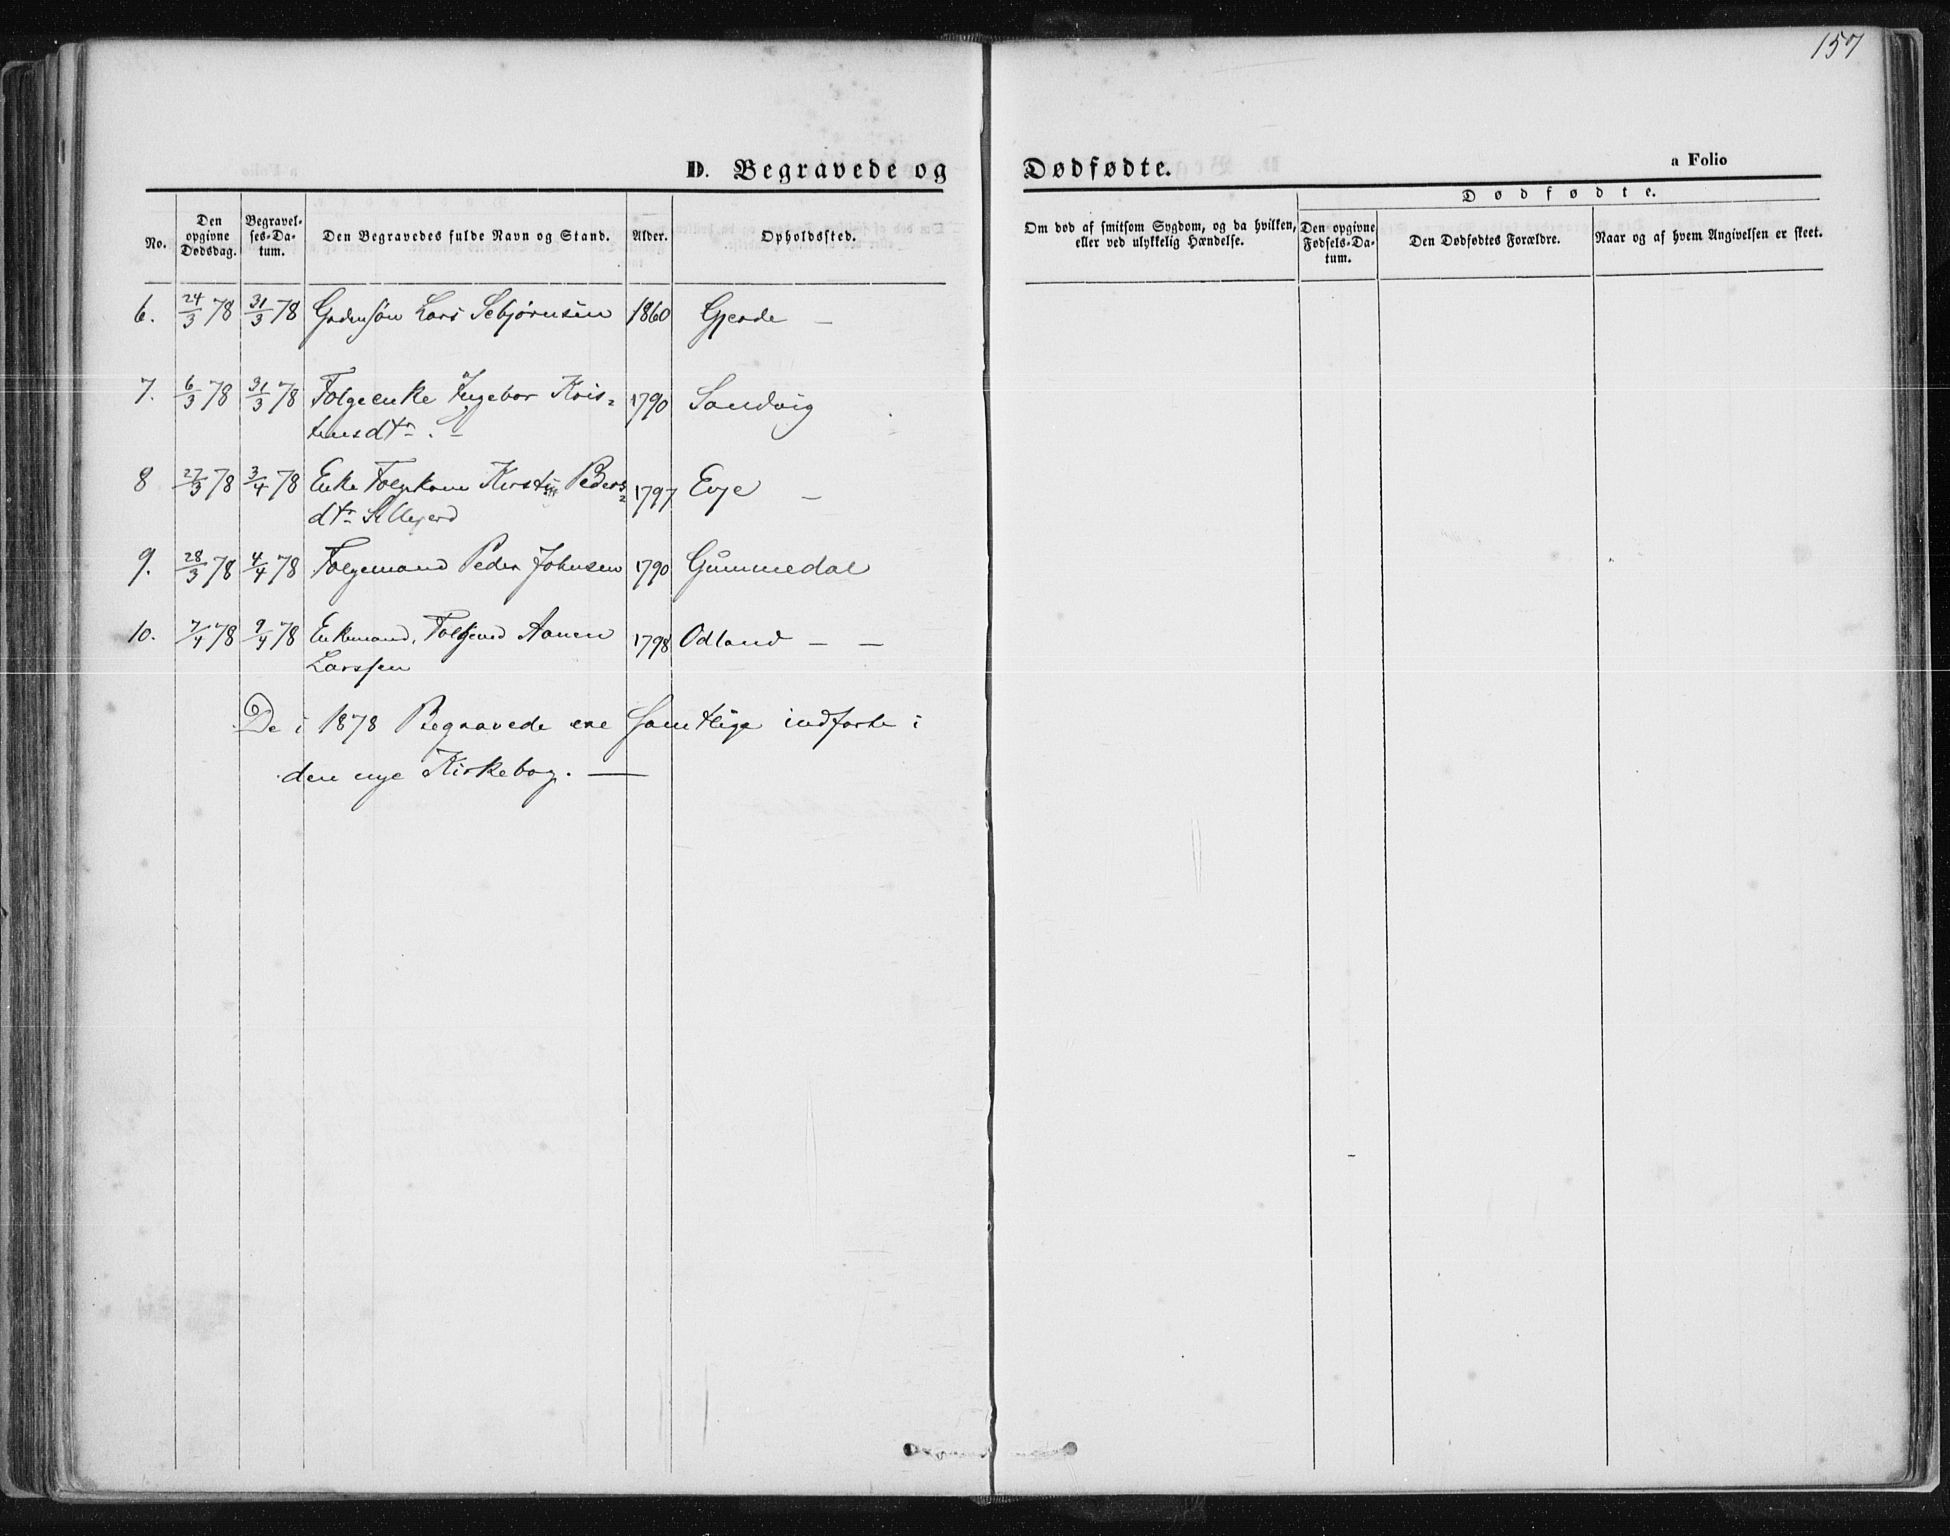 157
D. Begravede og Dødfødte.
a Folio
No.
Den opgivne Dødsdag.
Begravelses-Datum.
Den Begravedes fulde Navn og Stand.
Alder.
Opholdssted.
Om død af smitsom Sygdom, og da hvilken, eller ved ulykkelig Hændelse.
Dødfødte.
Den opgivne Fødsels-Datum.
Den Dødfødtes Forældre.
Naar og af hvem Angivelsen er skeet.
6. 24/3 78 31/3 78 Lars Sebjørnsen 1860 Gjerde –
7. 6/3 78 31/3 78 Folgeenke Ingebor Kris= 1790 Sandvig
tensdtr. –
8 27/3 78 3/4 78 Enke Folgekone Kirsti Peders= 1797 Evje –
dtr
9. 28/3 78 4/4 78 Folgemand Peder Johnsen 1790 Gummedal
10. 7/4 78 9/4 78 Enkemand, Aanen 1798 Odland – –
Larssen
De i 1878 Begravede ere samtlige indførte i
den nye Kirkebog. —